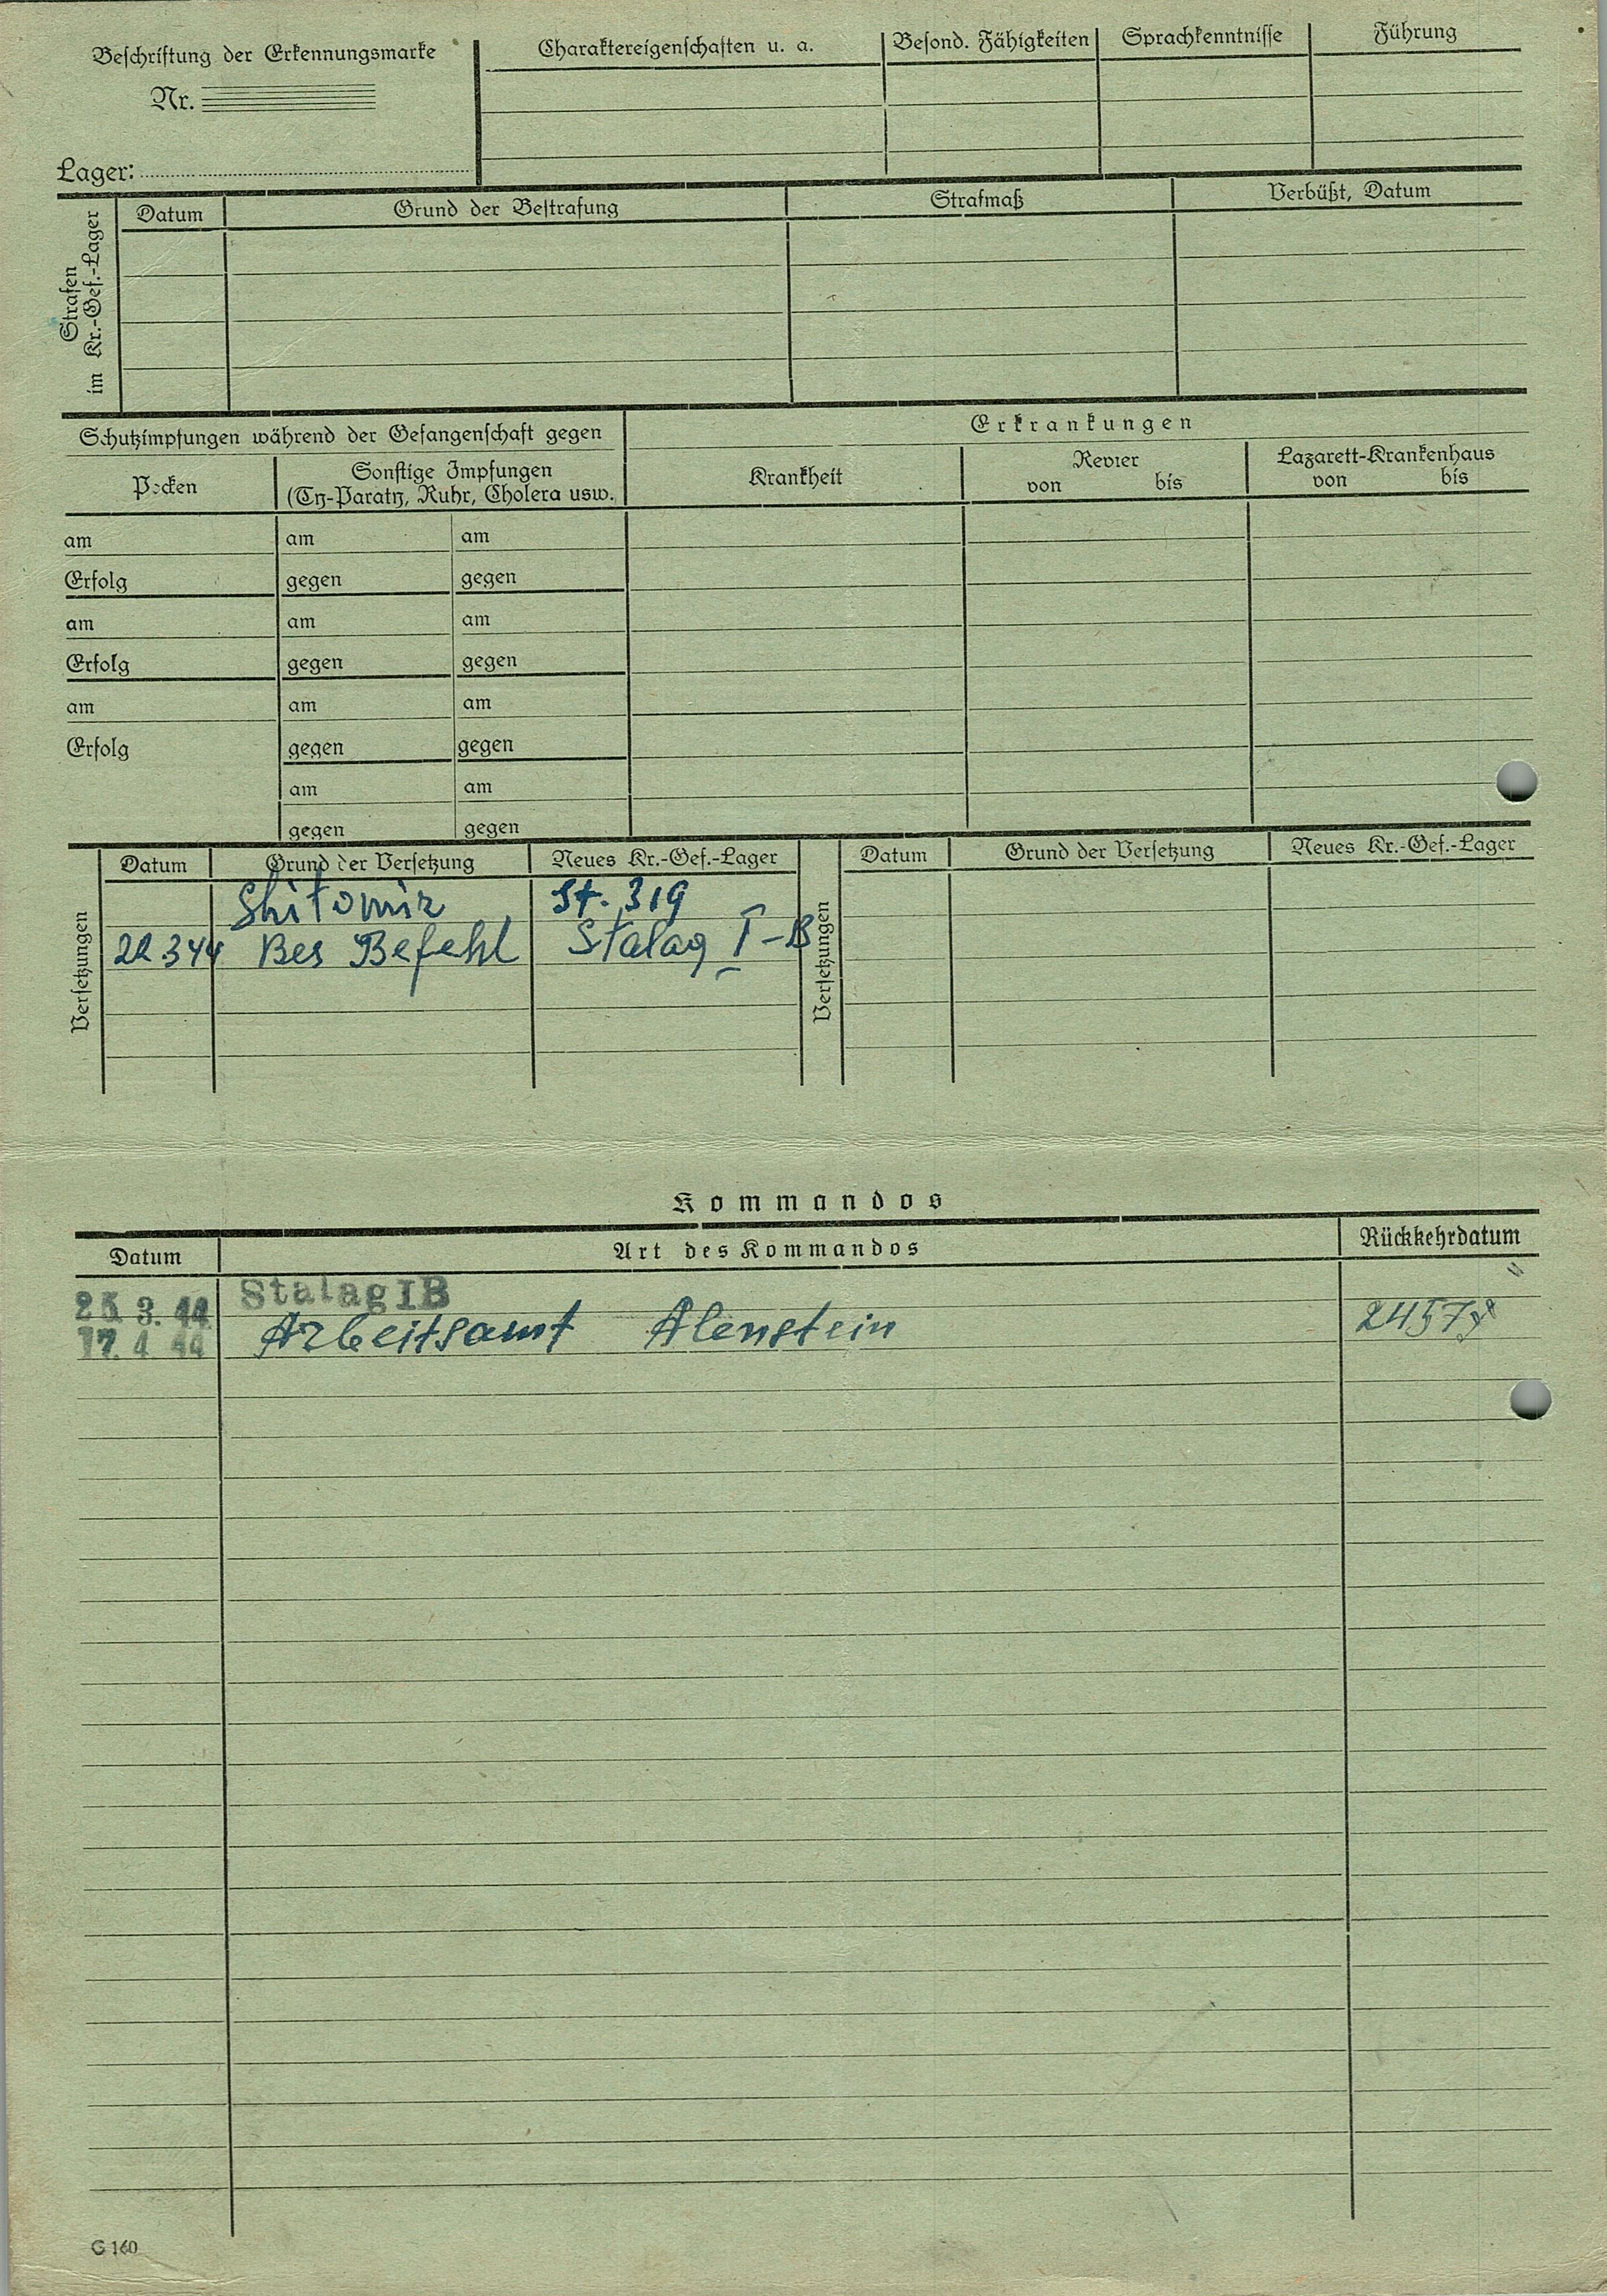 Beschriftung der Erkennungsmarke
Nr.
Lager:
Charaktereigenschaften u. a.
Besond. Fähigkeiten
Sprachkenntnisse
Führung
Strafen
im Kr.-Gef.-Lager
Datum
Grund der Bestrafung
Strafmaß
Verbüßt, Datum
Schutzimpfungen während der Gefangenschaft gegen
Erkrankungen
Pocken
Sonstige Impfungen
(Ty-Paraty, Ruhr, Cholera usw.
Krankheit
Revier
von bis
Lazarett-Krankenhaus
von bis
am am am
Erfolg gegen gegen
am am am
Erfolg gegen gegen
am am am
Erfolg gegen gegen
am am
gegen gegen
Versetzungen
Datum Grund der Versetzung Neues Kr.-Gef.-Lager
Shitomir St. 319
22 3 44 Bes Befehl Stalag I-B
Versetzungen
Datum Grund der Versetzung Neues Kr.-Gef.-Lager
Kommandos
Datum Art des Kommandos Rückkehrdatum
3. 44 Stalag IB
17. 4 44 Arbeitsamt Alenstein
G 160